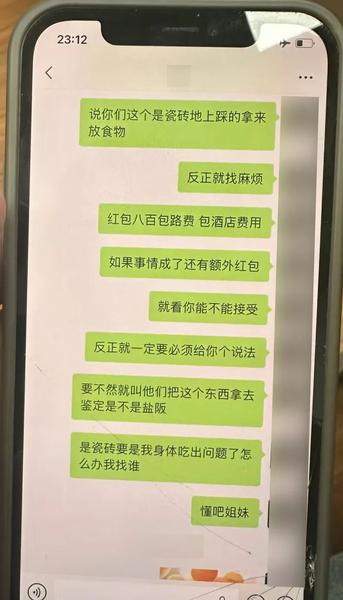 23:12
说你们这个是瓷砖地上踩的拿来
放食物
反正就找麻烦
红包八百包路费 包酒店费用
如果事情成了还有额外红包
就看你能不能接受
反正就一定要必须给你个说法
要不然就叫他们把这个东西拿去
鉴定是不是盐阪
是瓷砖要是我身体吃出问题了怎
么办我找谁
懂吧姐妹